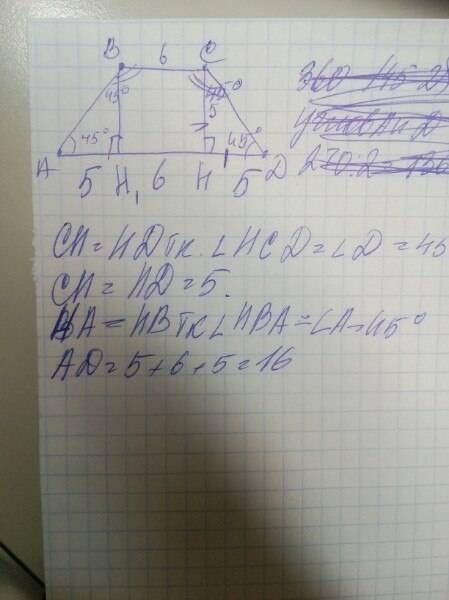 B 6 C
45° 45°
5
A 45° 45° D
5 H₁ 6 H 5
CH = HD т.к. ∠HCD = ∠D = 45
CH = HD = 5.
HA = HB тк ∠HBA = ∠A = 45°
AD = 5 + 6 + 5 = 16